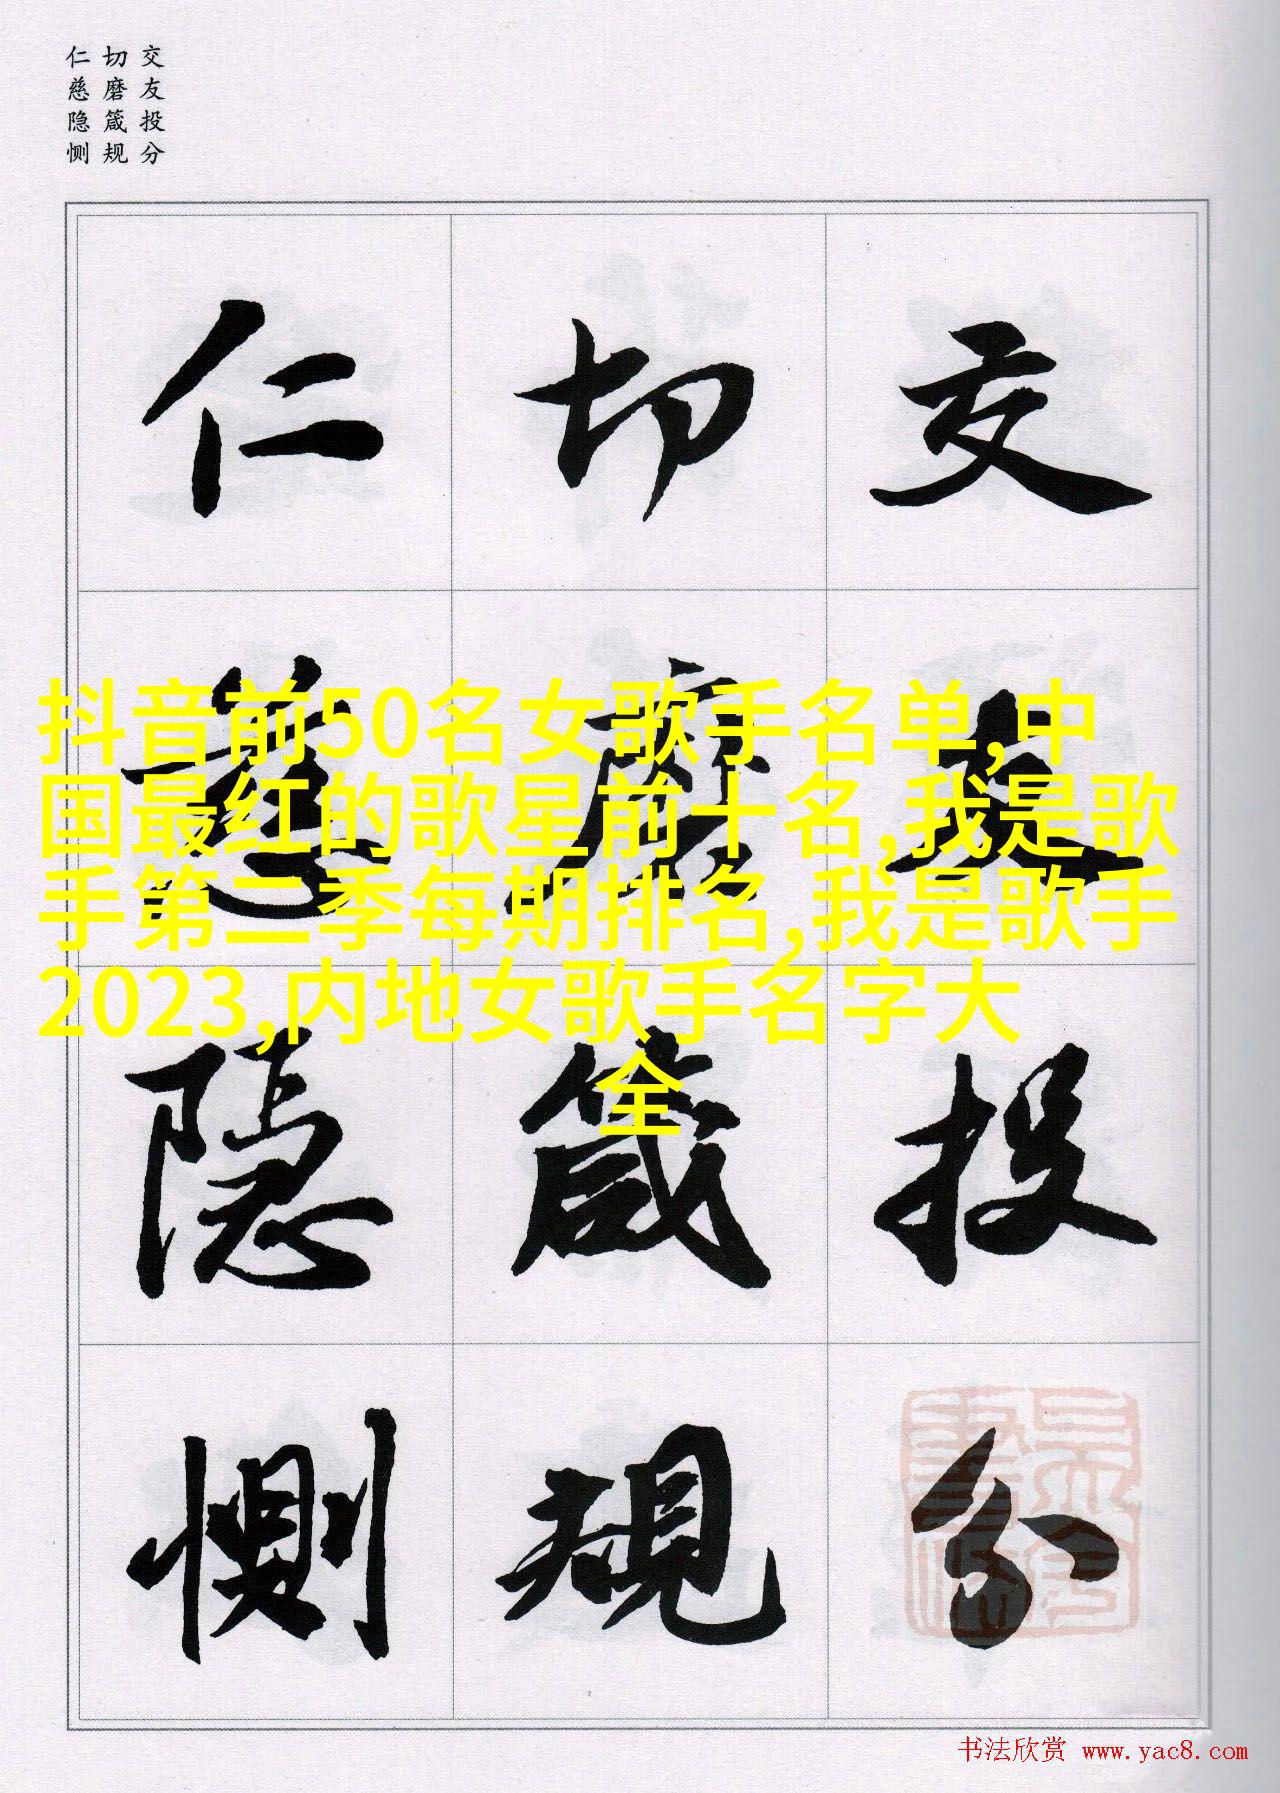 交友投分
切磨箴规
仁慈隐恻
交友投分
切磨箴規
仁慈隐恻
抖音前50名女歌手名单,中
国最红的歌星前十名,我是歌
手第二季每期排名,我是歌手
2023,内地女歌手名字大
全
书法欣赏 www.yac8.com